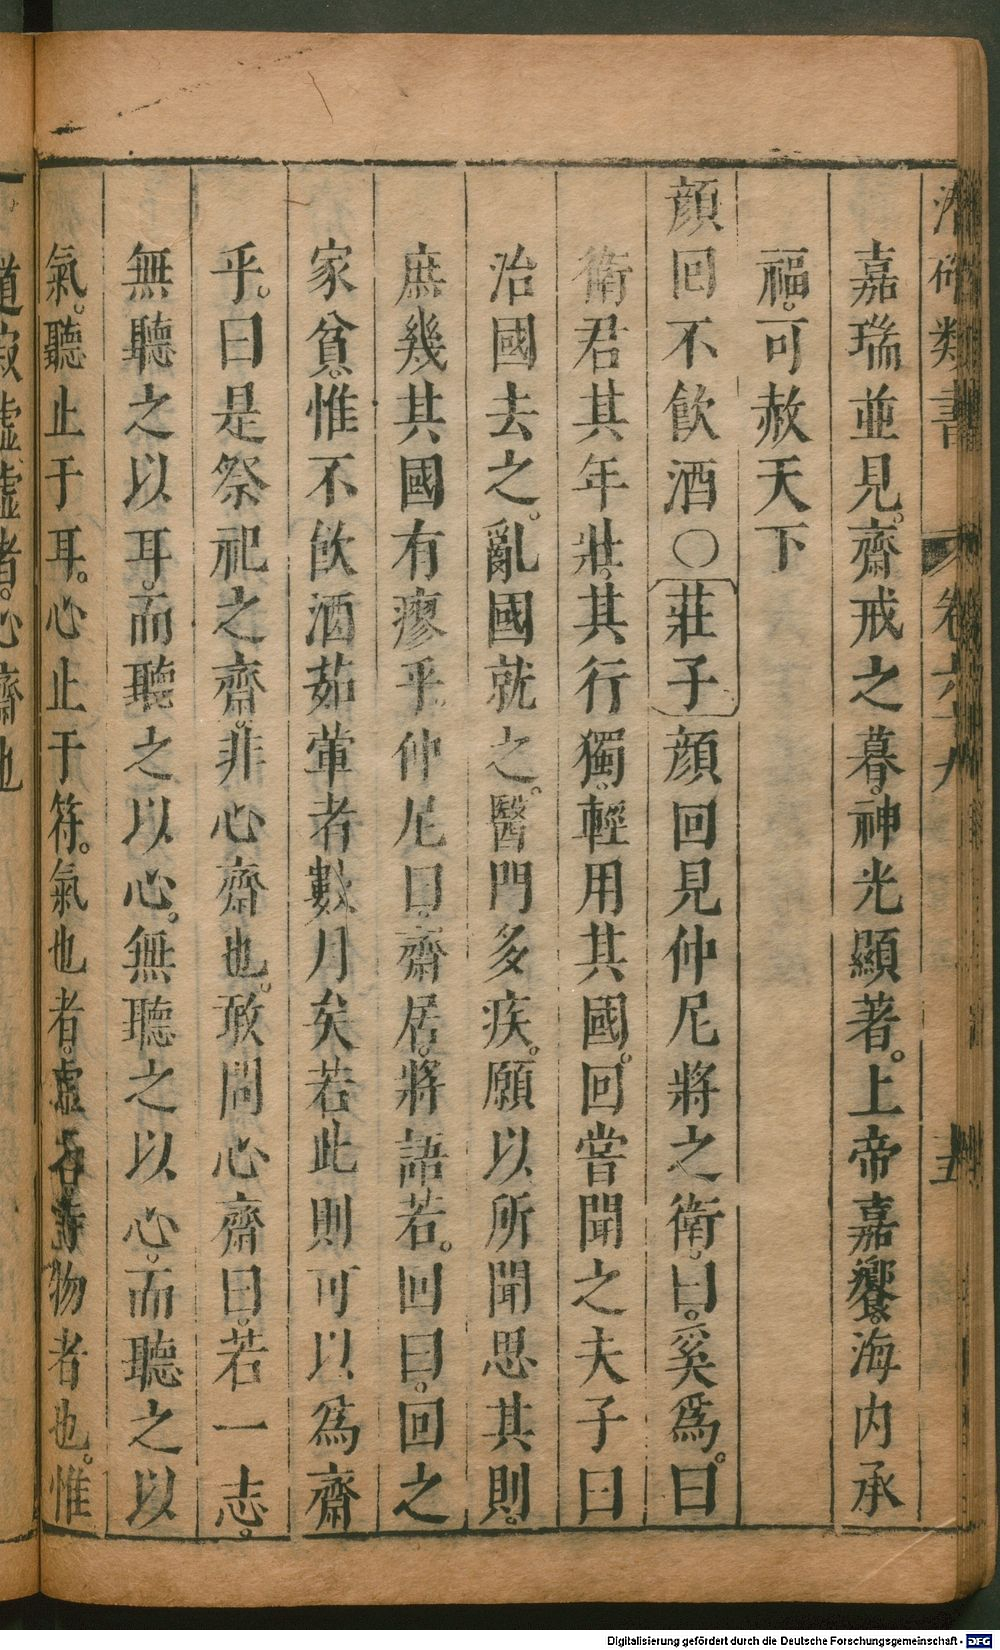 類書 卷六十九 五
嘉瑞並見。齋戒之暮。神光顯著。上帝嘉饗。海内承
福。可赦天下
顔回不飲酒〇莊子顔回見仲尼將之衛。曰。奚爲。曰
衛君其年壯。其行獨。輕用其國。回嘗聞之夫子曰
治國去之。亂國就之。醫門多疾。願以所聞思其則。
庶幾其國有瘳乎。仲尼曰。齋居。將語若。回曰。回之
家貧。惟不飲酒茹葷者數月矣若此則可以爲齋
乎。曰是祭祀之齋。非心齋也。敢問心齋曰。若一志。
無聽之以耳。而聽之以心。無聽之以心。而聽之以
氣。聽止于耳。心止于符。氣也者。虛而待物者也。惟
道寂虛虛者。心齋也
Digitalisierung gefördert durch die Deutsche Forschungsgemeinschaft - DFG